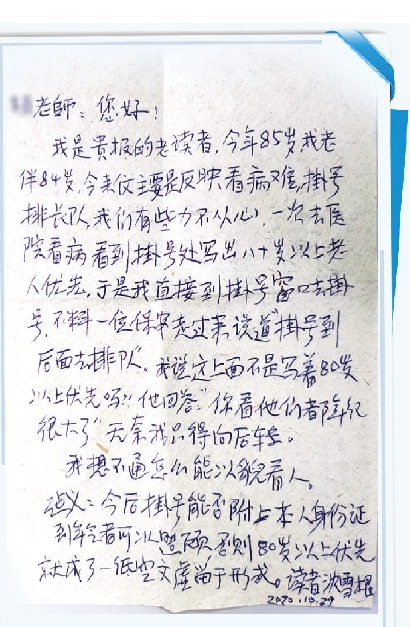 老師：您好！
我是貴报的老读者，今年85岁我老
伴84岁，今来仅主要是反映看病难，掛号
排长队，我们有些力不从心，一次去医
院看病看到掛号处写出八十岁以上老
人优先，于是我直接到掛号窗口去掛
号，不料一位保安走过来说道"掛号到
后面去排队"。我说这上面不是写着80岁
以上优先吗?"他回答"你看他们者年纪
很大了"无奈我只得向后转。
我想不通怎么能以貌看人。
建义：今后掛号能否附上本人身份证
到年令者可以照顾否则80岁以上优先
就成了一低空文虚留于形式。读者沈雪根
2020.10.29